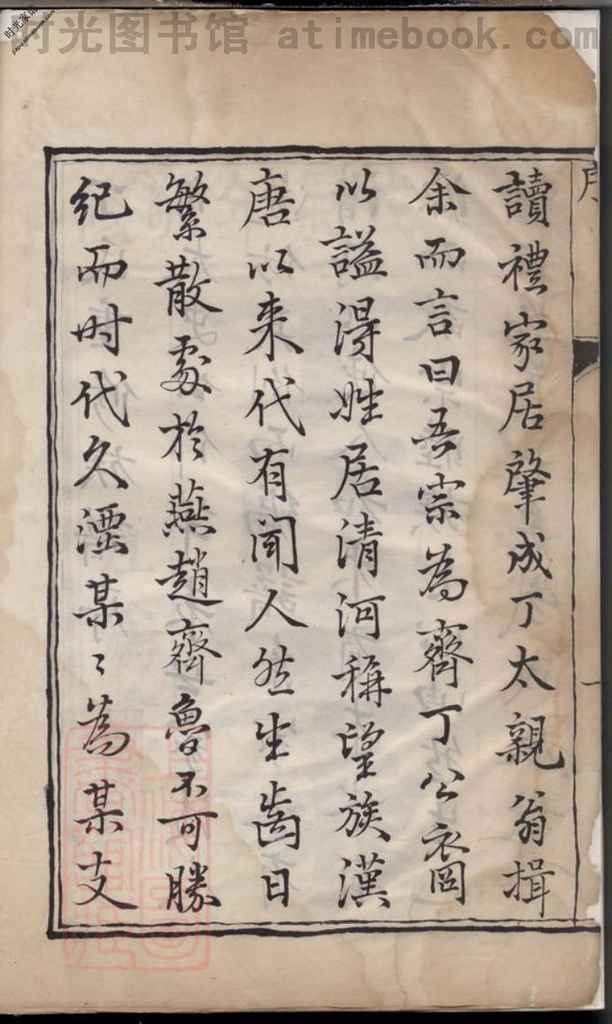 时光图书馆 atimebook.com
讀禮家居肇成丁太親翁揖
余而言曰吾宗為齊丁公裔
以謚得姓居清河稱望族漢
唐以来代有聞人然生齒日
繁散處於燕趙齊魯不可勝
紀而时代久湮某〻為某支